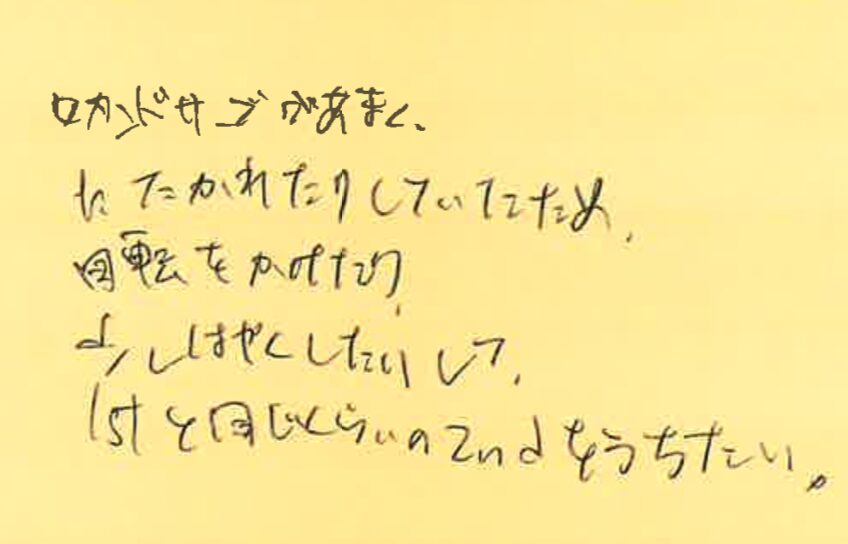 セカンドサーブがあまく、
たたかれたりしていたため、
回転をかけたり、
少しはやくしたりして、
1stと同じくらいの2ndをうちたい。